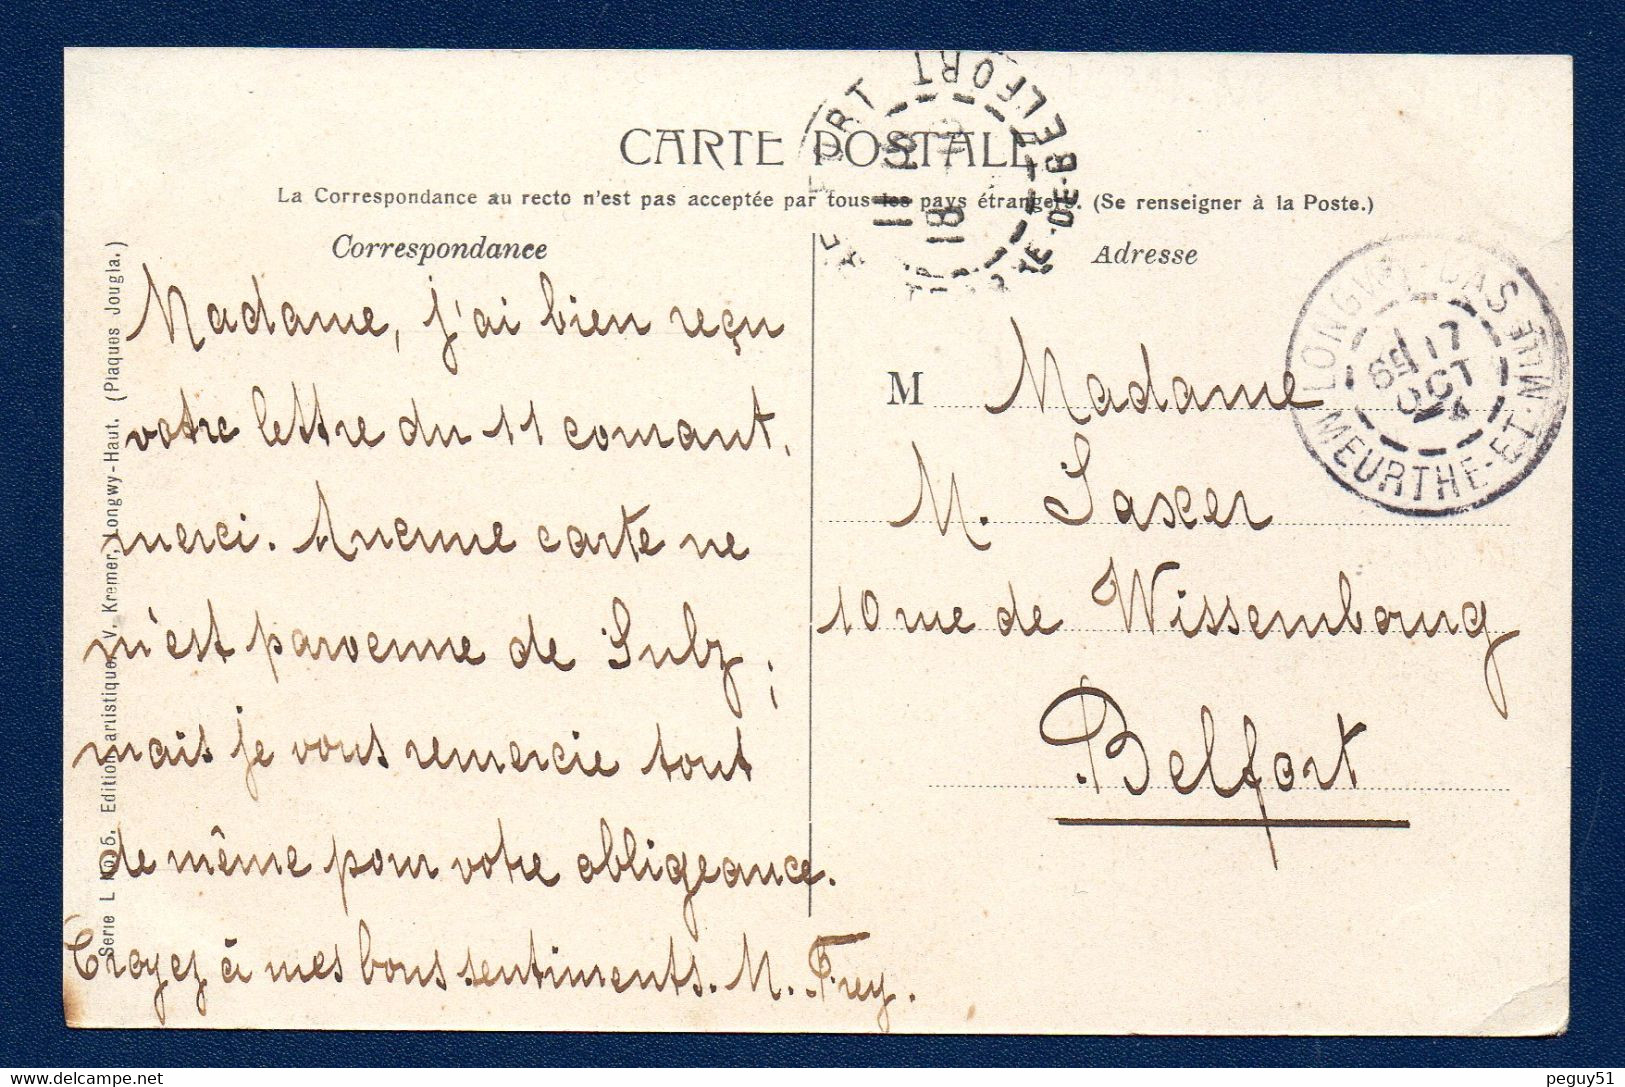 CARTE POSTALE
La Correspondance au recto n'est pas acceptée par tous les pays étrangers. (Se renseigner à la Poste.)
Correspondance
Madame, j'ai bien reçu
votre lettre du 11 courant,
merci. Aucune carte ne
m'est parvenue de Sulz;
mais je vous remercie tout
de même pour votre obligeance.
Croyez à mes bons sentiments. M. Frey.
Adresse
M Madame
M. Saxer
10 rue de Wissembourg
Belfort
BELFORT
TE-DE-BELFORT
11
18
LONGWY-BAS
17
OCT
MEURTHE-ET-MLLE
Série L No 5. Edition artistique, V. Kremer, Longwy-Haut. (Plaques Jougla.)
peguy51